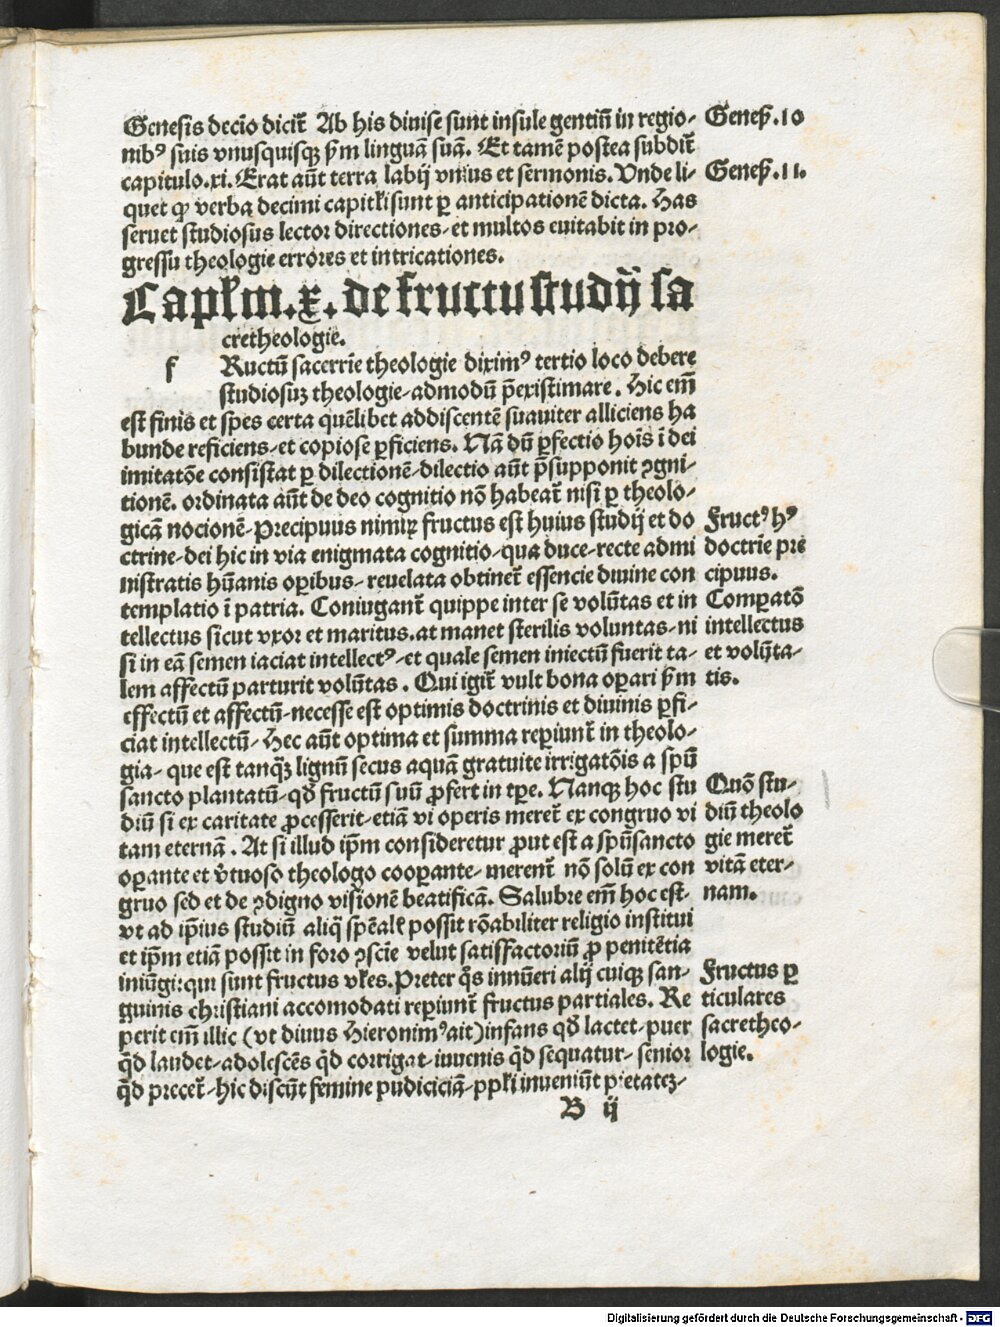 Genesis decio dicit̄ Ab his diuise sunt insule gentiū in regio-
nibꝰ suis vnusquisqꝫ ẜm linguā suā. Et tamē postea subdit̄
capitulo.xi. Erat aūt terra labij vnius et sermonis. Vnde li-
quet ꝙ verba decimi capitĺi sunt ꝑ anticipationē dicta. Has
seruet studiosus lector directiones-et multos euitabit in pro-
gressu theologie errores et intricationes.
Capĺm.x. de fructu studij sa
cretheologie.
f Ructū sacerrīe theologie diximꝰ tertio loco debere
studiosuꝫ theologie-admodū p̄existimare. Hic em̄
est finis et spes certa quēlibet addiscentē suauiter alliciens ha
bunde reficiens-et copiose ꝑficiens. Nā dū ꝑfectio hoīs ī dei
imitatōe consistat ꝑ dilectionē-dilectio aūt p̄supponit ꝯgni-
tionē. ordinata aūt de deo cognitio nō habeat̄ nisi ꝑ theolo-
gicā nocionē-Precipuus nimiꝝ fructus est huius studij et do
ctrine-dei hic in via enigmata cognitio-qua duce-recte admi
nistratis hūanis oꝑibus-reuelata obtinet̄ essencie diuine con
templatio ī patria. Coniugant̄ quippe inter se volūtas et in
tellectus sicut vxor et maritus.at manet sterilis voluntas-ni
si in eā semen iaciat intellectꝰ-et quale semen iniectū fuerit ta-
lem affectū parturit volūtas. Qui igit̄ vult bona oꝑari ẜm
effectū et affectū-necesse est optimis doctrinis et diuinis ꝑfi-
ciat intellectū-Hec aūt optima et summa reꝑiunt̄ in theolo-
gia-que est tanqꝫ̄ lignū secus aquā gratuite irrigatōis a spū
sancto plantatū-qd̄ fructū suū ꝓfert in tꝑe. Nanqꝫ hoc stu
diū si ex caritate ꝓcesserit-etiā vi operis meret̄ ex congruo vi
tam eternā. At si illud ip̄m consideretur ꝓut est a spūsancto
oꝑante et v̓tuoso theologo cooꝑante-merent̄ nō solū ex con
gruo sed et de ꝯdigno visionē beatificā. Salubre em̄ hoc est-
vt ad ip̄ius studiū aliq̄ sp̄ealꝭ possit rōabiliter religio institui
et ip̄m etiā possit in foro ꝯscīe velut satisfactoriū ꝓ penitētia
iniūgi:qui sunt fructus vĺes. Preter q̄s innūeri alij cuiqꝫ san-
guinis christiani accomodati reꝑiunt̄ fructus partiales. Re
perit em̄ illic (vt diuus Hieronimꝰ ait) infans qd̄ lactet-puer
qd̄ laudet-adolescēs qd̄ corrigat-iuuenis qd̄ sequatur-senior
qd̄ precet̄-hic discūt femine pudiciciā-ppĺi inueniūt pietateꝫ-
B ij
Geneẜ.10
Geneẜ.11.
Fructꝰ hꝰ
doctrīe pre
cipuus.
Comꝑatō
intellectus
et volūta-
tis.
Quō stu-
diū theolo
gie meret̄
vitā eter-
nam.
Fructus ꝑ
ticulares
sacretheo-
logie.
Digitalisierung gefördert durch die Deutsche Forschungsgemeinschaft - DFG